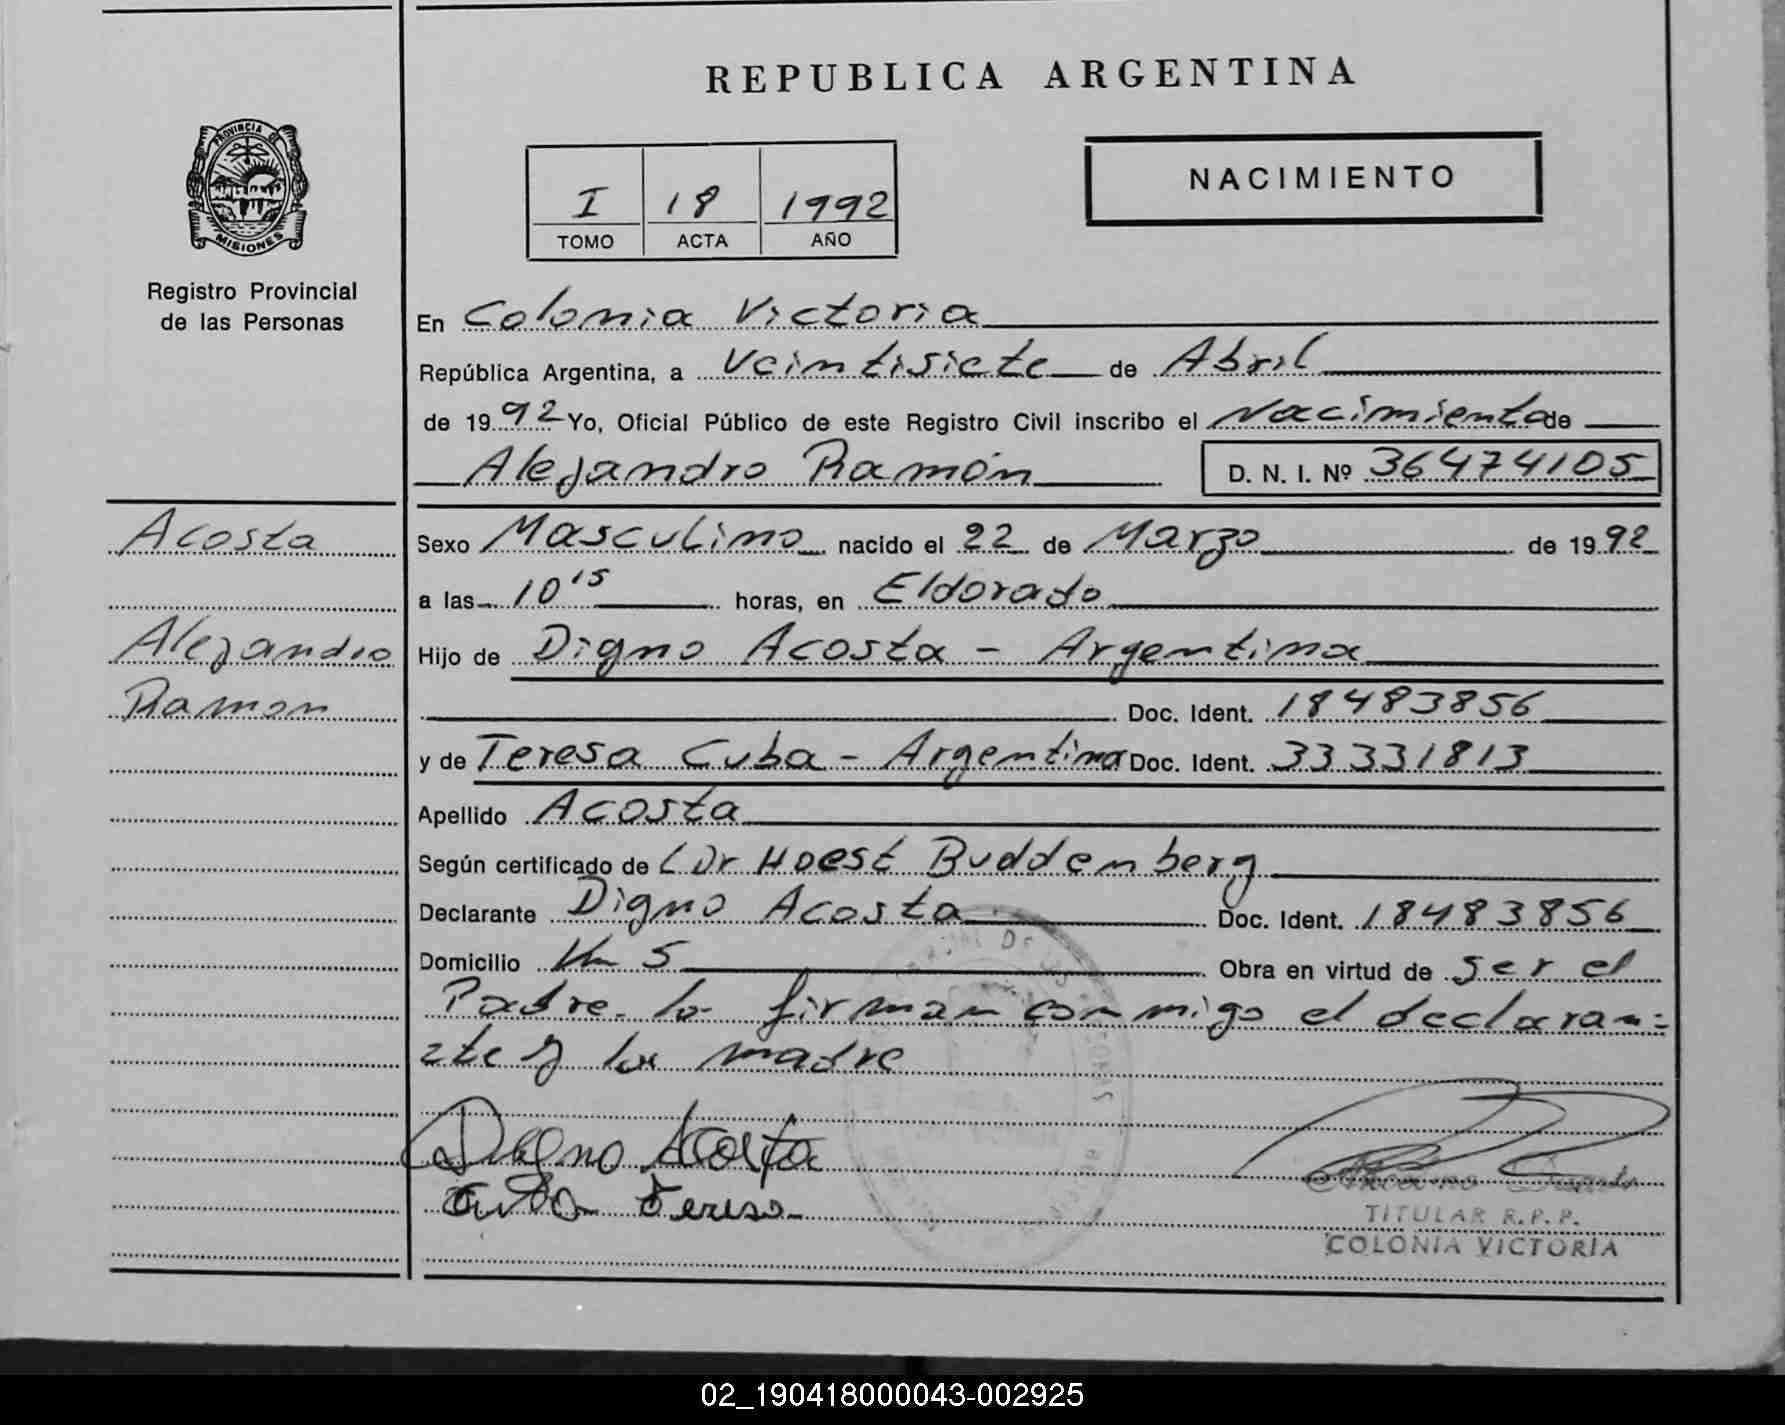 REPUBLICA ARGENTINA
PROVINCIA DE
MISIONES
Registro Provincial
de las Personas
I 18 1992
TOMO ACTA AÑO
NACIMIENTO
En Colonia Victoria
República Argentina, a Veintisiete de Abril
de 1992 Yo, Oficial Público de este Registro Civil inscribo el Nacimiento de
Alejandro Ramón D. N. I. Nº 36474105
Acosta
Alejandro
Ramon
Sexo Masculino nacido el 22 de Marzo de 1992
a las 10 15 horas, en Eldorado
Hijo de Digno Acosta - Argentina
Doc. Ident. 18483856
y de Teresa Cuba - Argentina Doc. Ident. 33331813
Apellido Acosta
Según certificado de Dr Hoest Buddemberg
Declarante Digno Acosta Doc. Ident. 18483856
Domicilio Km 5 Obra en virtud de ser el
Padre. lo firman conmigo el declaran=
=te y la madre
Digno Acosta
Cuba Teresa
TITULAR R.P.P.
COLONIA VICTORIA
02_190418000043-002925